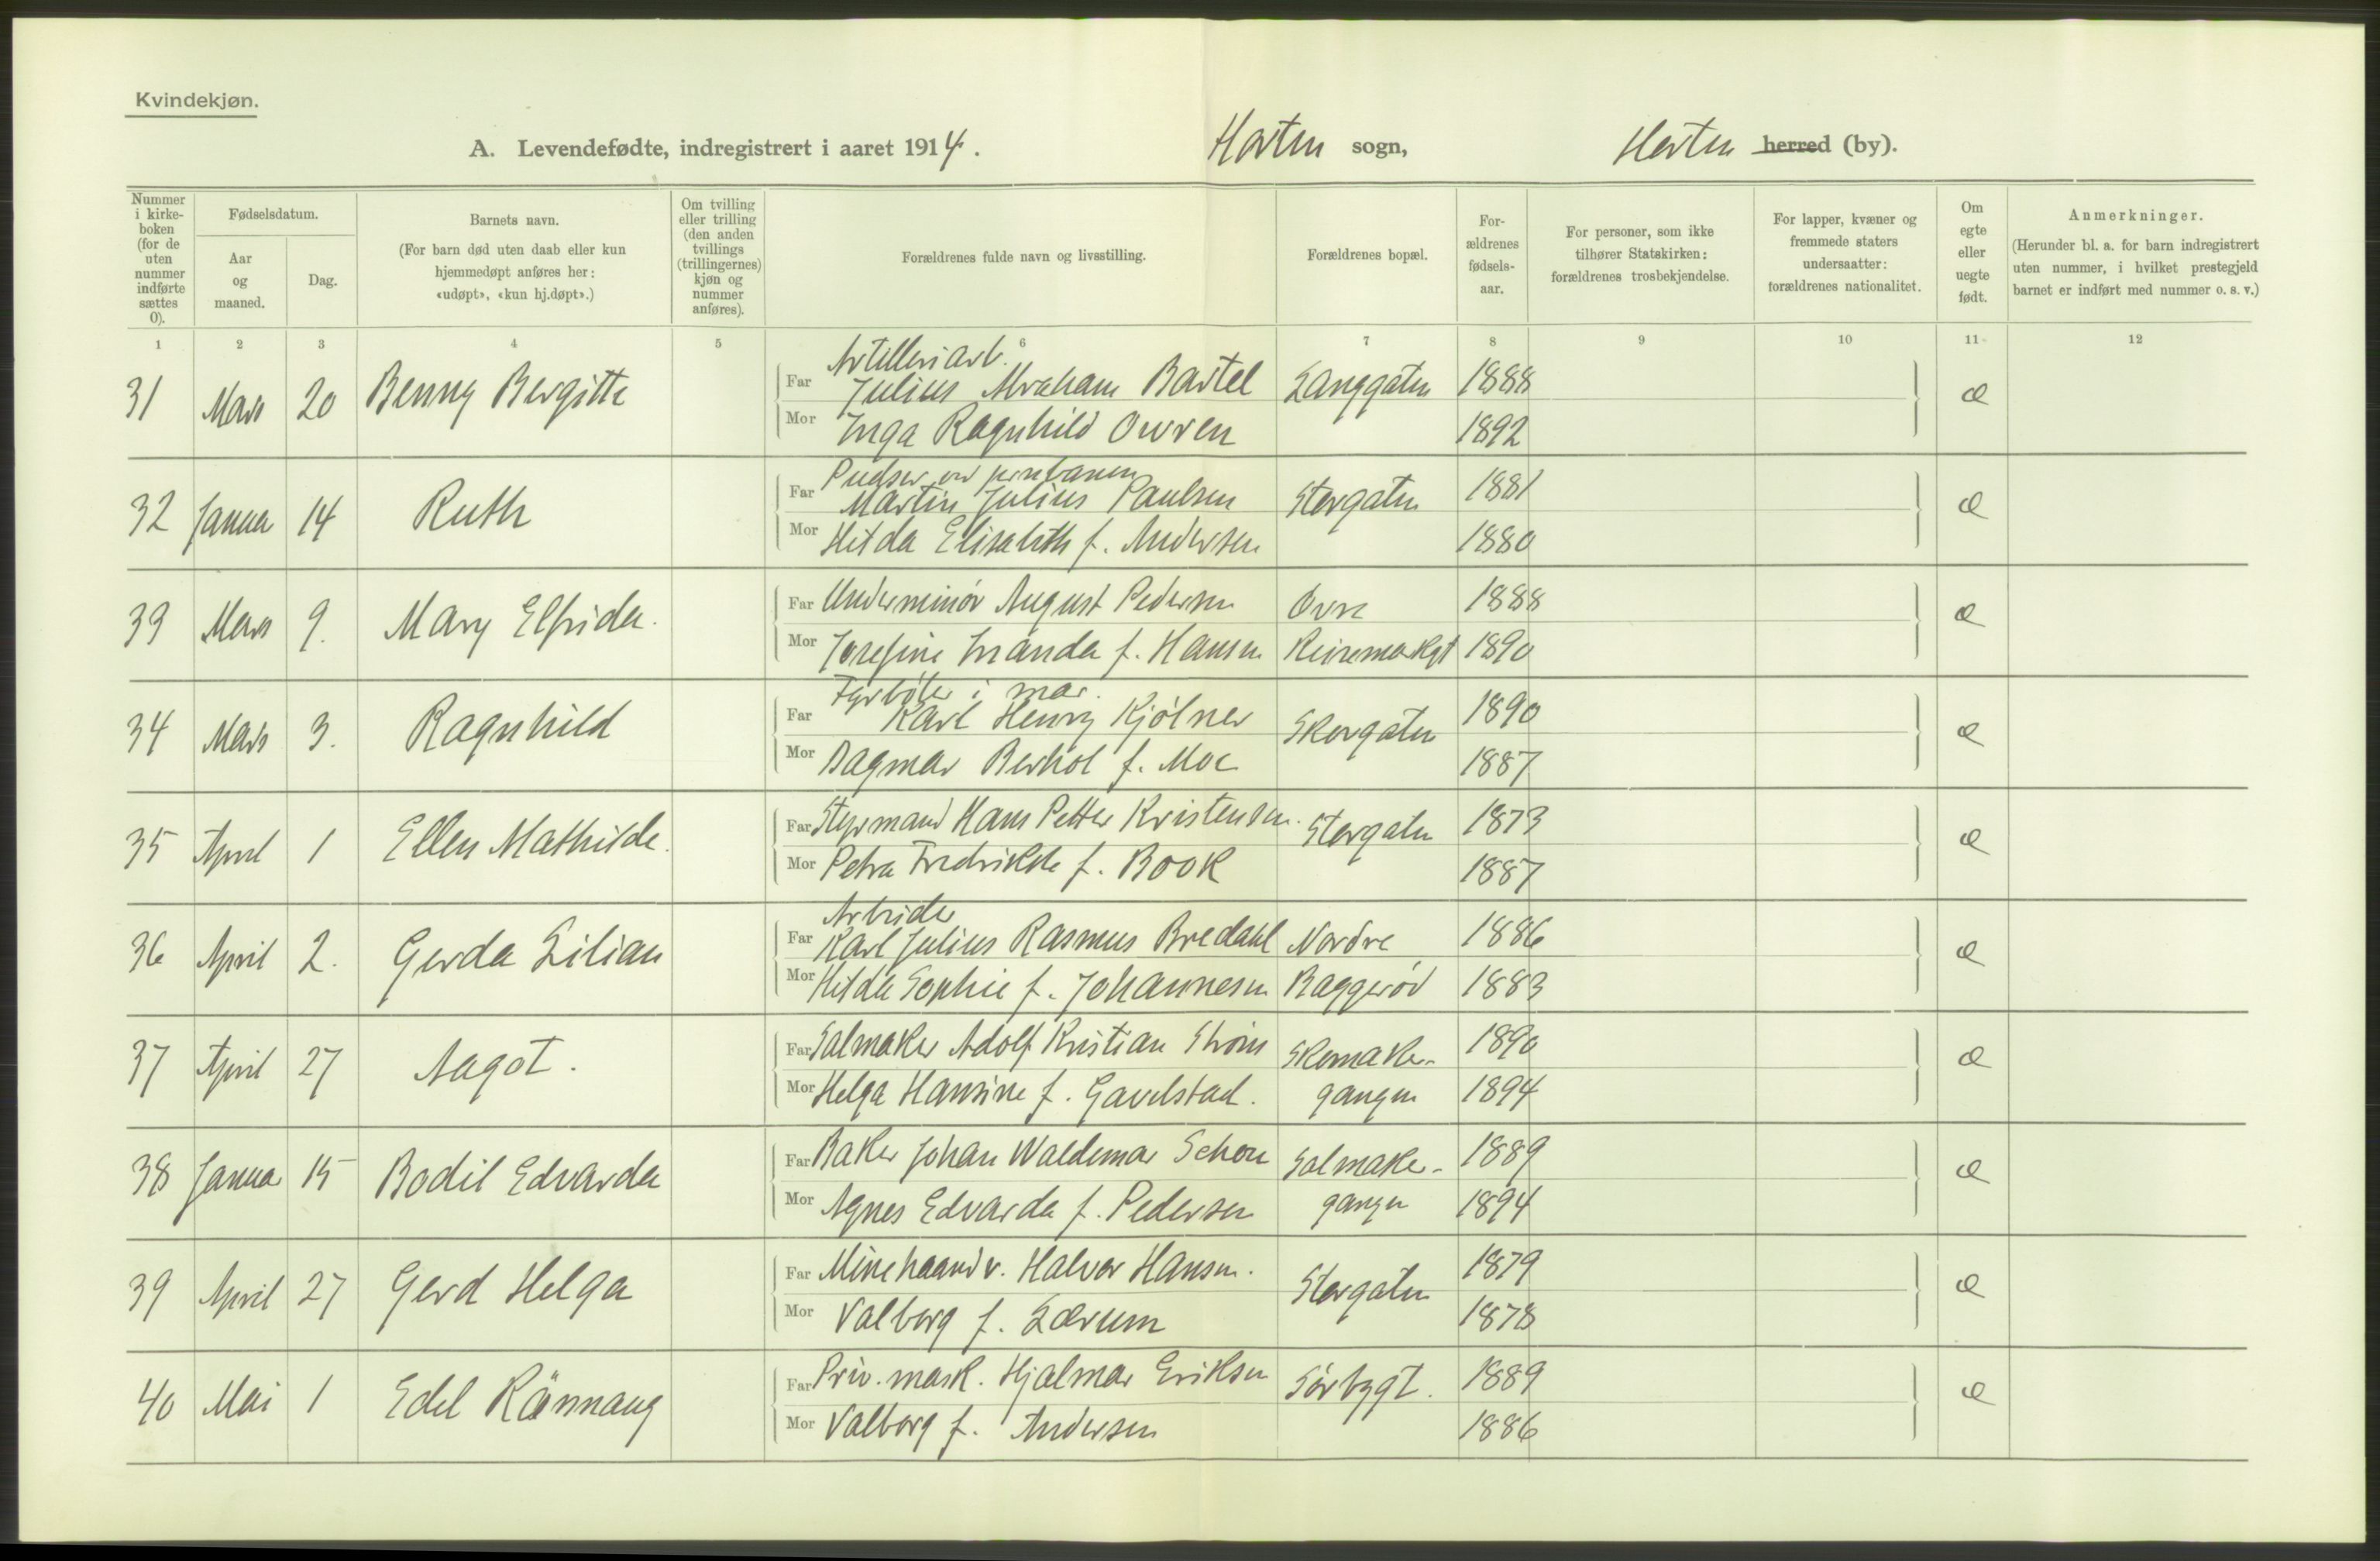 Kvindekjøn.
A. Levendefødte, indregistrert i aaret 1914. Horten sogn, Horten herred (by).
Nummer i kirkeboken (for de uten nummer indførte sættes 0).
Fødselsdatum.
Aar og maaned.
Dag.
Barnets navn.
(For barn død uten daab eller kun hjemmedøpt anføres her: «udøpt», «kun hj.døpt».)
Om tvilling eller trilling (den anden tvillings (trillingernes) kjøn og nummer anføres).
Forældrenes fulde navn og livsstilling.
Forældrenes bopæl.
Forældrenes fødselsaar.
For personer, som ikke tilhører Statskirken: forældrenes trosbekjendelse.
For lapper, kvæner og fremmede staters undersaatter: forældrenes nationalitet.
Om egte eller uegte født.
Anmerkninger.
(Herunder bl. a. for barn indregistrert uten nummer, i hvilket prestegjeld barnet er indført med nummer o. s. v.)
1 2 3 4 5 6 7 8 9 10 11 12
31 Mars 20 Benny Bergitte
Artilleriarb.
Far Julius Abraham Bartel Langgaten 1888 e
Mor Inga Ragnhild Owren 1892
32 Januar 14 Ruth
Pudser ved jernbanen
Far Martin Julius Paulsen Storgaten 1881 e
Mor Hilda Elisabeth f. Andersen 1880
33 Mars 9. Mary Elfrida.
Far Underminør August Pedersen Øvre 1888 e
Mor Josefine Amanda f. Hansen Keisemarkgt 1890
34 Mars 3. Ragnhild
Fyrbøter i mar.
Far Karl Henry Kjølner Skovgaten 1890 e
Mor Dagmar f. Moe 1887
35 April 1 Ellen Mathilde.
Far Styrmand Hans Petter Kristensen. Storgaten 1873 e
Mor Petra Fredrikke f. Book 1887
36 April 2. Gerda Lilian
Arbeider
Far Karl Julius Rasmus Bredahl Nordre 1886 e
Mor Hilda Sophie f. Johannesen Baggerød 1883
37 April 27 Aagot.
Far Salmaker Adolf Kristian Strøm Skomaker- 1890 e
Mor Helga Hansine f. Gavelstad. gangen 1894
38 Januar 15 Bodil Edvarda
Far Baker Johan Waldemar Schou Salmaker- 1889 e
Mor Agnes Edvarda f. Pedersen gangen 1894
39 April 27 Gerd Helga
Far Minehaandv. Halvor Hansen. Storgaten 1879 e
Mor Valborg f. Lærum 1878
40 Mai 1 Edel Rännaug
Far Priv. mask. Hjalmar Eriksen Sørbygt. 1889 e
Mor Valborg f. Andersen 1886